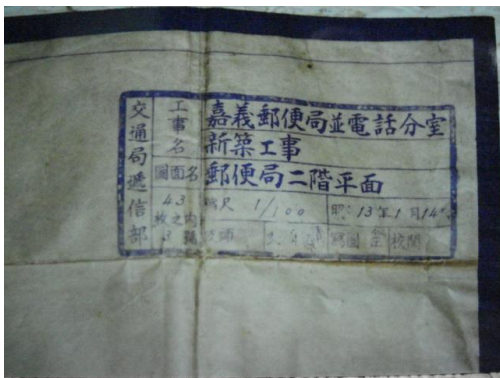 交通局遞信部
工事名
嘉義郵便局並電話分室
新築工事
圖面名
郵便局二階平面
43
枚之內
3 號
縮尺 1/100
昭 13年1月14
製圖
校閱